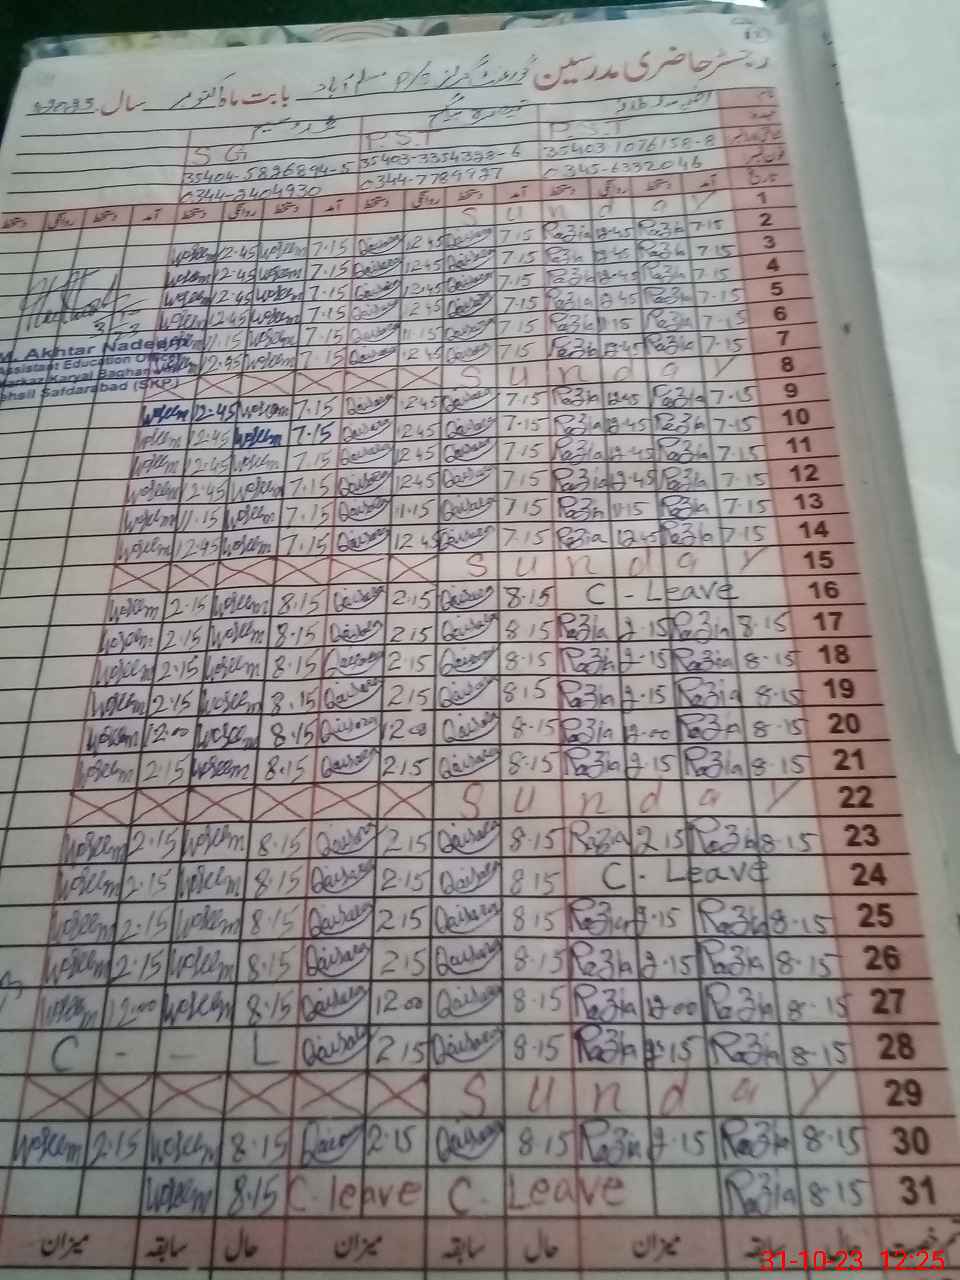 رجسٹر حاضری مدرسین گورنمنٹ گرلز P/S مسلم آباد بابت ماہ اکتوبر سال 2023
P.S.T P.S.T S G
35403-1076158-8 35403-3354328-6 35404-5826894-5
0345-6332046 0344-7789927 0344-2404930
تاریخ آمد دستخط روانگی دستخط آمد دستخط روانگی دستخط آمد دستخط روانگی دستخط آمد دستخط روانگی دستخط
Sunday 1
Waseem 12.45 Waseem 7.15 Qaisara 12.45 Qaisara 7.15 Razia 12.45 Razia 7.15 2
Waseem 12.45 Waseem 7.15 Qaisara 12.45 Qaisara 7.15 Razia 12.45 Razia 7.15 3
Waseem 12.45 Waseem 7.15 Qaisara 12.45 Qaisara 7.15 Razia 12.45 Razia 7.15 4
Waseem 12.45 Waseem 7.15 Qaisara 12.45 Qaisara 7.15 Razia 12.45 Razia 7.15 5
11.15 Waseem 7.15 Qaisara 11.15 Qaisara 7.15 Razia 11.15 Razia 7.15 6
12.45 Waseem 7.15 Qaisara 12.45 Qaisara 7.15 Razia 12.45 Razia 7.15 7
M. Akhtar Nadeem
Assistant Education Officer
Markaz Karyal Baghan
Tehsil Safdarabad (SKP)
Sunday 8
Waseem 12.45 Waseem 7.15 Qaisara 12.45 Qaisara 7.15 Razia 12.45 Razia 7.15 9
Waseem 12.45 Waseem 7.15 Qaisara 12.45 Qaisara 7.15 Razia 12.45 Razia 7.15 10
Waseem 12.45 Waseem 7.15 Qaisara 12.45 Qaisara 7.15 Razia 12.45 Razia 7.15 11
Waseem 12.45 Waseem 7.15 Qaisara 12.45 Qaisara 7.15 Razia 12.45 Razia 7.15 12
Waseem 11.15 Waseem 7.15 Qaisara 11.15 Qaisara 7.15 Razia 11.15 Razia 7.15 13
Waseem 12.45 Waseem 7.15 Qaisara 12.45 Qaisara 7.15 Razia 12.45 Razia 7.15 14
Sunday 15
Waseem 2.15 Waseem 8.15 Qaisara 2.15 Qaisara 8.15 C - Leave 16
Waseem 2.15 Waseem 8.15 Qaisara 2.15 Qaisara 8.15 Razia 2.15 Razia 8.15 17
Waseem 2.15 Waseem 8.15 Qaisara 2.15 Qaisara 8.15 Razia 2.15 Razia 8.15 18
Waseem 2.15 Waseem 8.15 Qaisara 2.15 Qaisara 8.15 Razia 2.15 Razia 8.15 19
Waseem 12.00 Waseem 8.15 Qaisara 12.00 Qaisara 8.15 Razia 12.00 Razia 8.15 20
Waseem 2.15 Waseem 8.15 Qaisara 2.15 Qaisara 8.15 Razia 2.15 Razia 8.15 21
Sunday 22
Waseem 2.15 Waseem 8.15 Qaisara 2.15 Qaisara 8.15 Razia 2.15 Razia 8.15 23
Waseem 2.15 Waseem 8.15 Qaisara 2.15 Qaisara 8.15 C - Leave 24
Waseem 2.15 Waseem 8.15 Qaisara 2.15 Qaisara 8.15 Razia 2.15 Razia 8.15 25
Waseem 2.15 Waseem 8.15 Qaisara 2.15 Qaisara 8.15 Razia 2.15 Razia 8.15 26
Waseem 12.00 Waseem 8.15 Qaisara 12.00 Qaisara 8.15 Razia 12.00 Razia 8.15 27
C - - L Qaisara 2.15 Qaisara 8.15 Razia 2.15 Razia 8.15 28
Sunday 29
Waseem 2.15 Waseem 8.15 Qaisara 2.15 Qaisara 8.15 Razia 2.15 Razia 8.15 30
Waseem 8.15 C. leave C. Leave Razia 8.15 31
حال سابقہ میزان حال سابقہ میزان حال سابقہ میزان
31-10-23 12:25